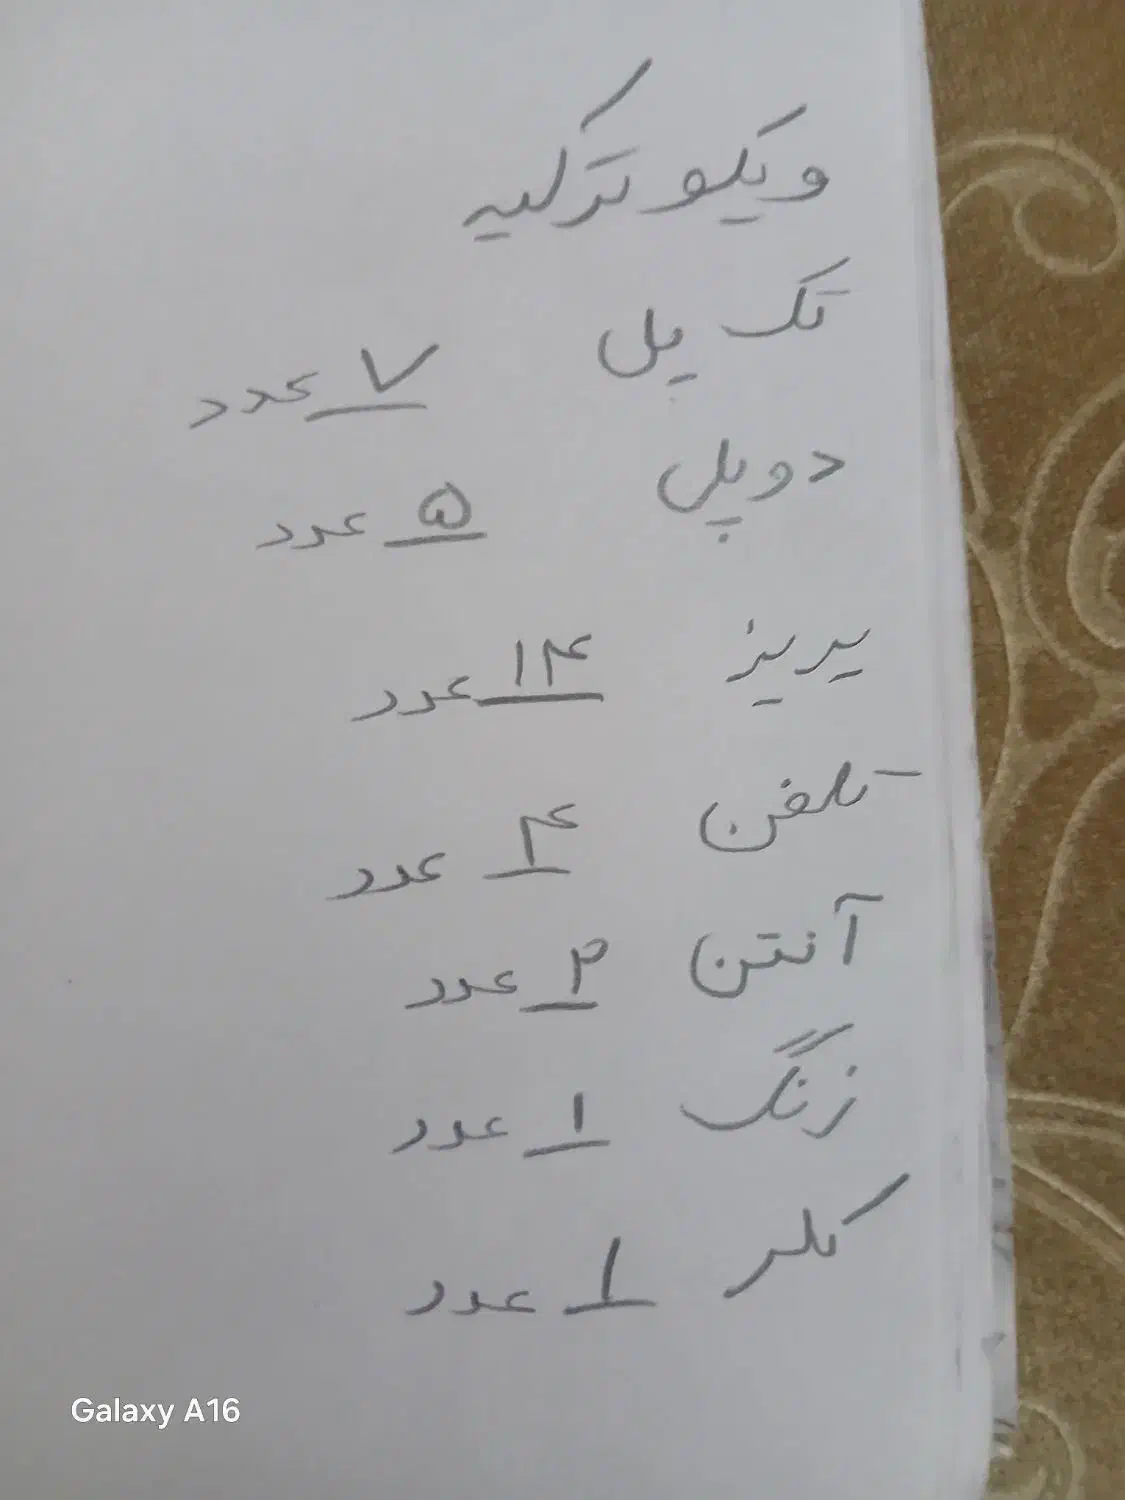 ویکو ترکیه
تک پل ۷ عدد
دوپل ۵ عدد
پریز ۱۴ عدد
تلفن ۴ عدد
آنتن ۲ عدد
زنگ ۱ عدد
کلر ۱ عدد
Galaxy A16